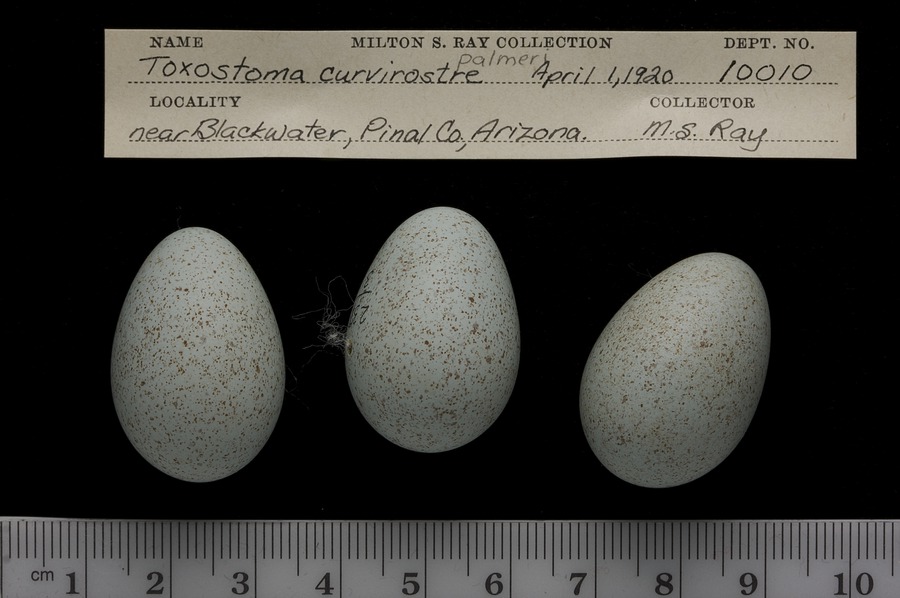 NAME MILTON S. RAY COLLECTION DEPT. NO.
palmeri
Toxostoma curvirostre April 1, 1920 10010
LOCALITY COLLECTOR
near Blackwater, Pinal Co, Arizona. M.S. Ray
cm 1 2 3 4 5 6 7 8 9 10